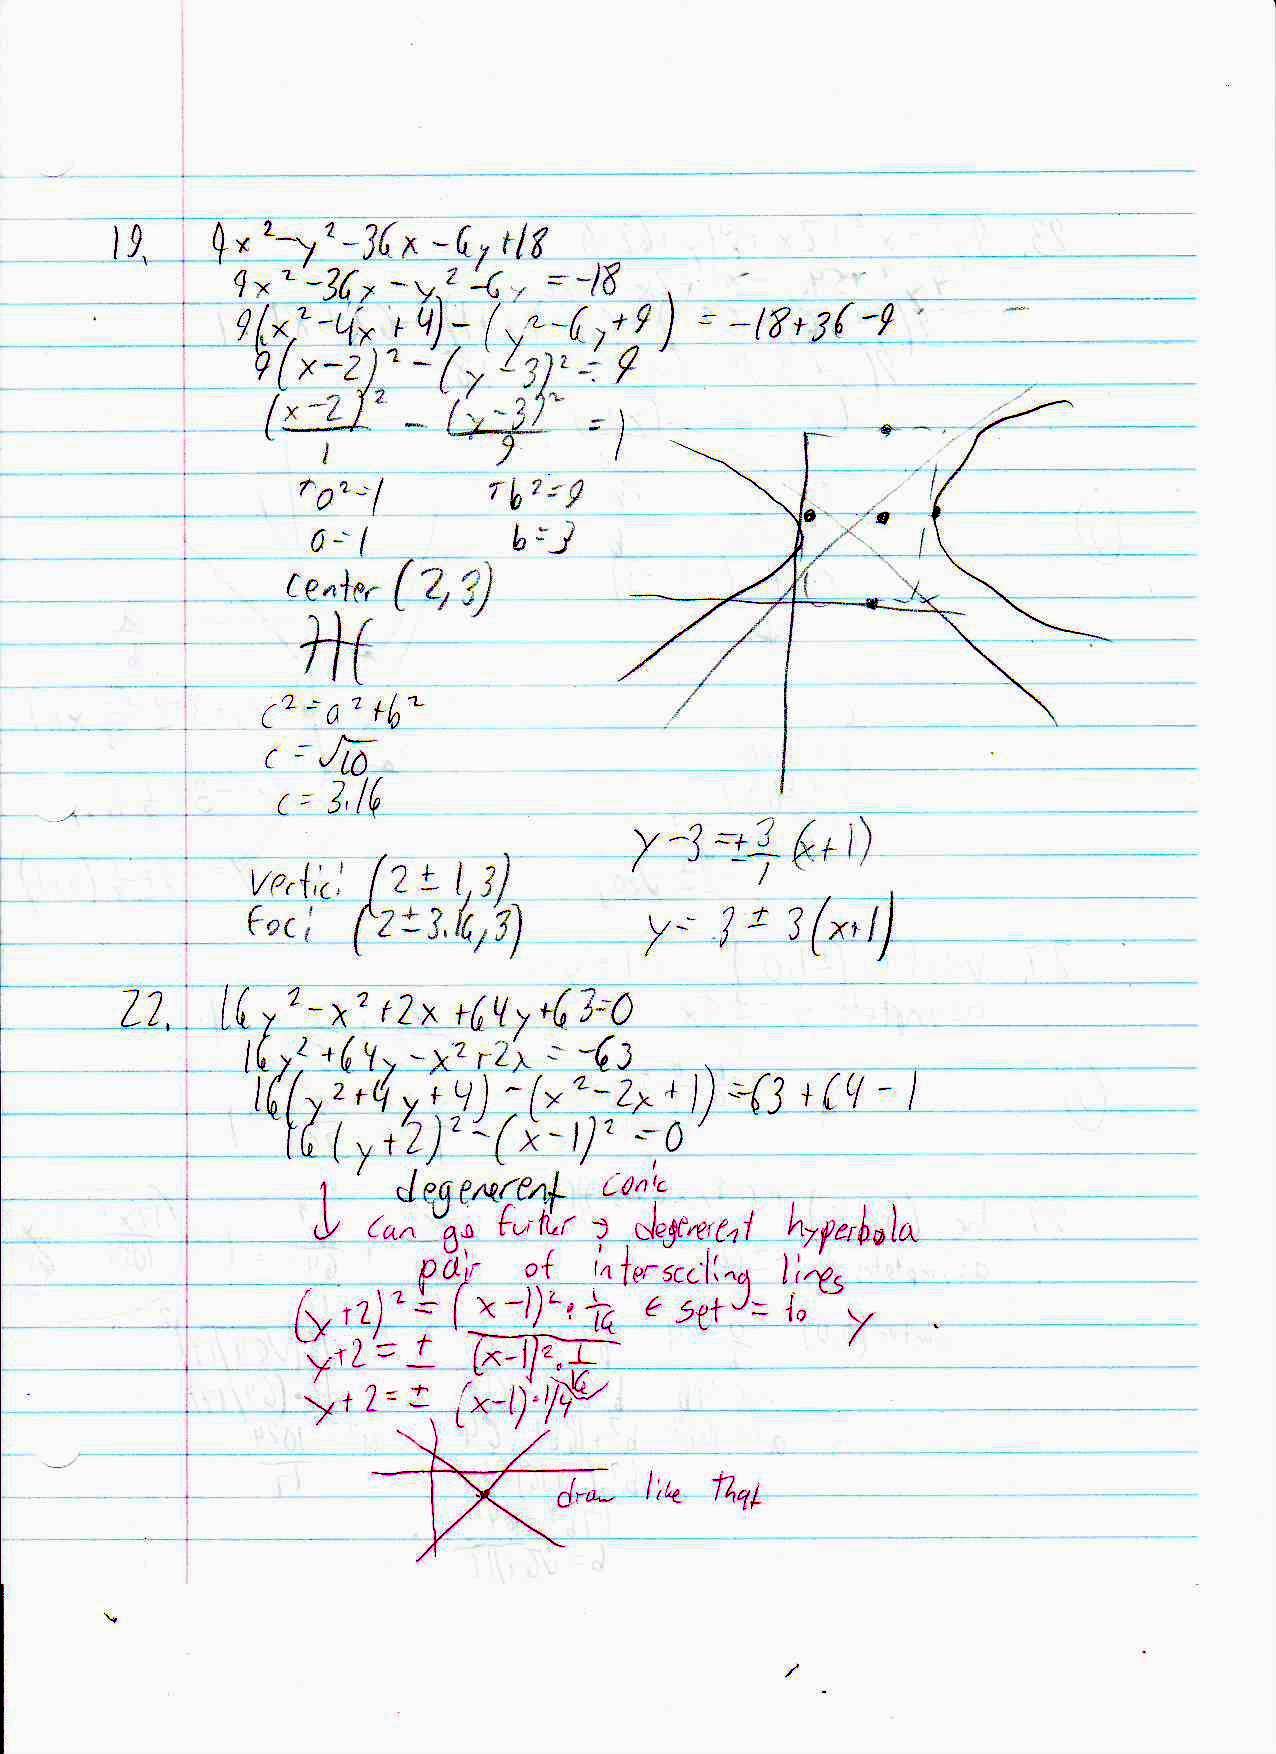 19. 9x²-y²-36x-6y+18
9x²-36x-y²-6y=-18
9(x²-4x+4)-(y²-6y+9)=-18+36-9
9(x-2)²-(y-3)²=9
(x-2)²/1 - (y-3)²/9 =1
a²=1 b²=9
a=1 b=3
center (2,3)
c²=a²+b²
c=√10
c=3.16
y-3=±3/1(x+1)
vertic: (2±1,3)
Foci (2±3.16,3) y=3±3(x+1)
22. 16y²-x²+2x+64y+63=0
16y²+64y-x²+2x=-63
16(y²+4y+4)-(x²-2x+1)=-63+64-1
16(y+2)²-(x-1)²=0
↓ degenerent conic
can go furthur → degenerent hyperbola
pair of intersecting lines
(y+2)²=(x-1)²·1/16 ← set = to y
y+2=±√(x-1)²·1/16
y+2=±(x-1)·1/4
draw like that